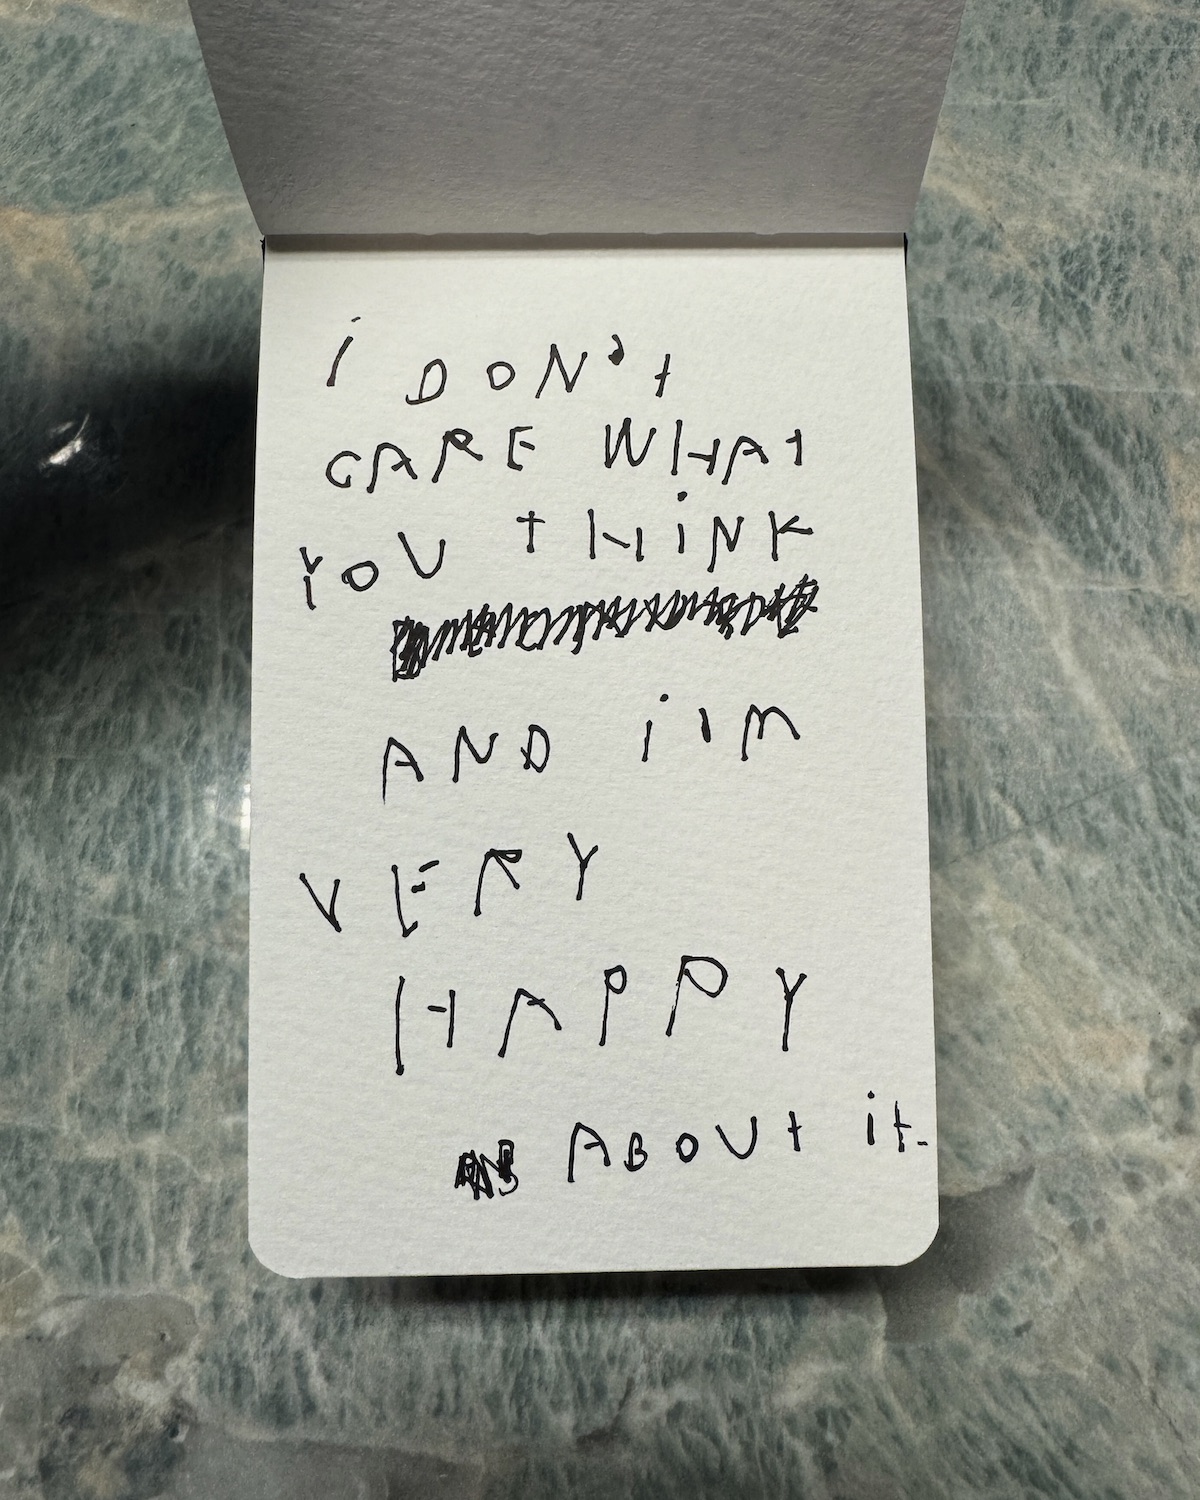 i DON't
CARE WHAt
YOU tHiNK
AND i'm
VERY
HAPPY
ABOUt it.